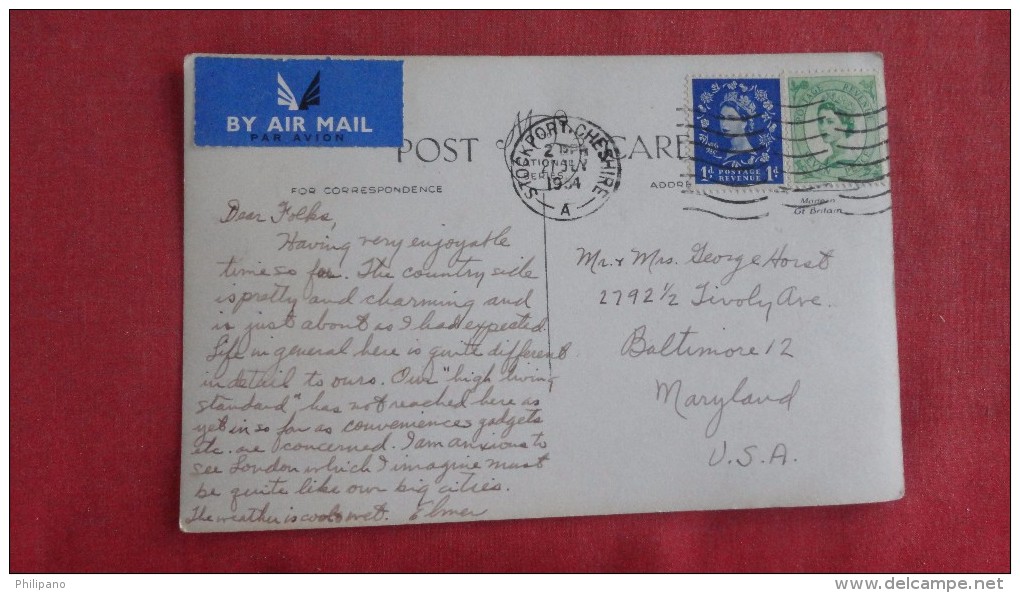 BY AIR MAIL
PAR AVION
POST CARD
FOR CORRESPONDENCE
STOCKPORT·CHESHIRE
1954
A
1D POSTAGE REVENUE 1D
POSTAGE REVENUE
Gt Britain
Dear Folks,
Having very enjoyable
time so far. The country side
is pretty and charming and
is just about as I had expected.
Life in general here is quite different
in detail to ours. Our "high living
standard", has not reached here as
yet in so far as conveniences gadgets
etc. are concerned. I am anxious to
see London which I imagine must
be quite like our big cities.
The weather is cool & wet. Elmer
Mr. & Mrs. George Horst
2792 1/2 Tivoly Ave.
Baltimore 12
Maryland
U.S.A.
Philipano
www.delcampe.net